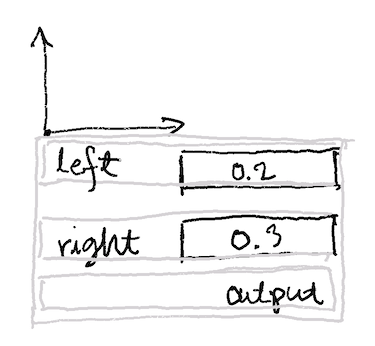 left 0.2
right 0.3
output